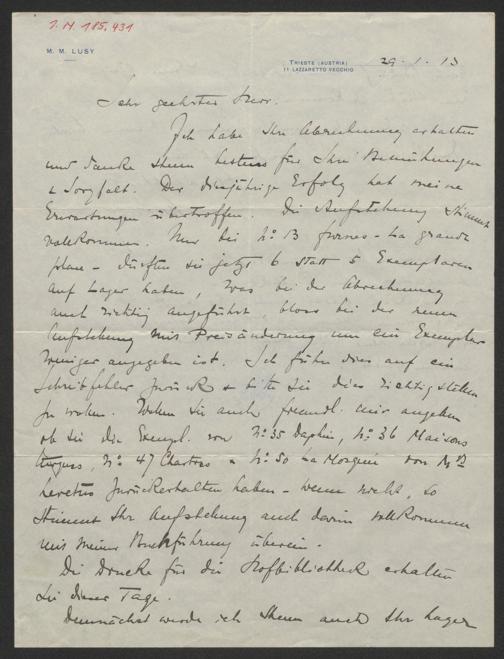 J. N. 185.431
M. M. LUSY
TRIESTE (AUSTRIA)
11 LAZZARETTO VECCHIO
29. 1. 13
Sehr geehrter Herr.
Ich habe Ihre Abrechnung erhalten
und danke Ihnen bestens für Ihre Bemühungen
& Sorgfalt. Der diesjährige Erfolg hat meine
Erwartungen übertroffen. Die Aufstellung stimmt
vollkommen. Nur bei No 13 Furnes - La grande
place - dürften sie jetzt 6 statt 5 Exemplaren
auf Lager haben, was bei der Abrechnung
auch richtig angeführt, bloss bei der neuen
Aufstellung mit Preisänderung um ein Exemplar
weniger angegeben ist. Ich führe dies auf ein
Schreibfehler zurück & bitte Sie dies richtig stellen
zu wollen. Wollen Sie auch freundl. mir angeben
ob Sie die Exempl. von No 35 Dauphin, No 36 Maisons
turques, No 47 Chartres & No 50 La Mosquée von
zurückerhalten haben - wenn nicht, so
stimmt Ihr Aufstellung auch darin vollkommen
mit meiner Buchführung überein.
Die Drucke für die Hofbibliothek erhalten
Sie dieser Tage.
Demnächst werde ich Ihnen auch Ihr Lager